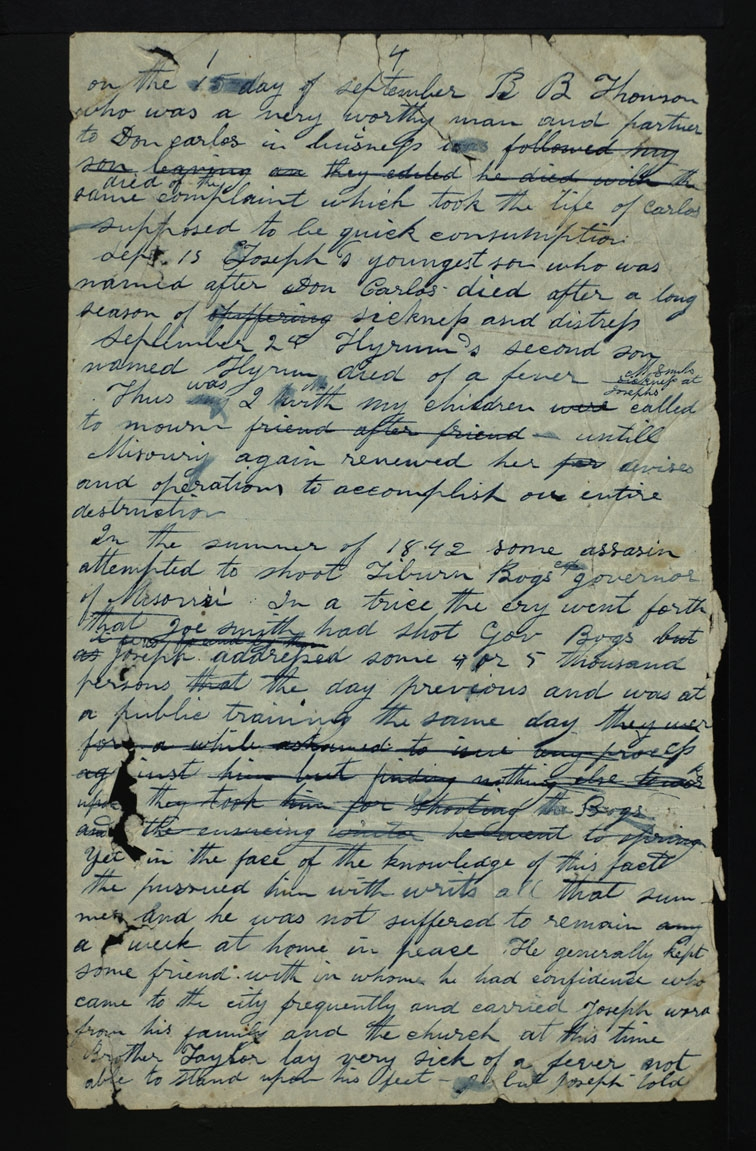 4
on the 15 day of september B B Thomson
who was a very worthy man and partner
to Don carlos in business was followed my
son leaving as they did he died with the
died of the
same complaint which took the life of carlos
supposed to be quick consumption
sept. 15 Joseph's youngest son who was
named after Don Carlos died after a long
season of suffering sickness and distress
September 24 Hyrum's second son
named Hyrum died of a fever
Josephs
Thus was I with my children were called
to mourn friend after friend untill
Misouri again renewed her for devises
and operations to accomplish our entire
destruction
In the summer of 1842 some assasin
attempted to shoot Liburn Bogs ex governor
of Misouri In a trice the cry went forth
that Joe smith had shot Gov Bogs but
as Joseph addressed some 4 or 5 thousand
persons that the day previous and was at
a public training the same day they were
for a while ashamed to issue any process
against him but finding nothing else to
upon they took him for shooting the Bogs
and the ensueing winter he went to spring
Yet in the face of the knowledge of this fact
the pursued him with writs all that sum
mer and he was not suffered to remain any
a week at home in peace He generally kept
some friend with in whom he had confidence who
came to the city frequently and carried Joseph word
from his family and the church at this time
Brother Taylor lay very sick of a fever not
able to stand upon his feet but Joseph told